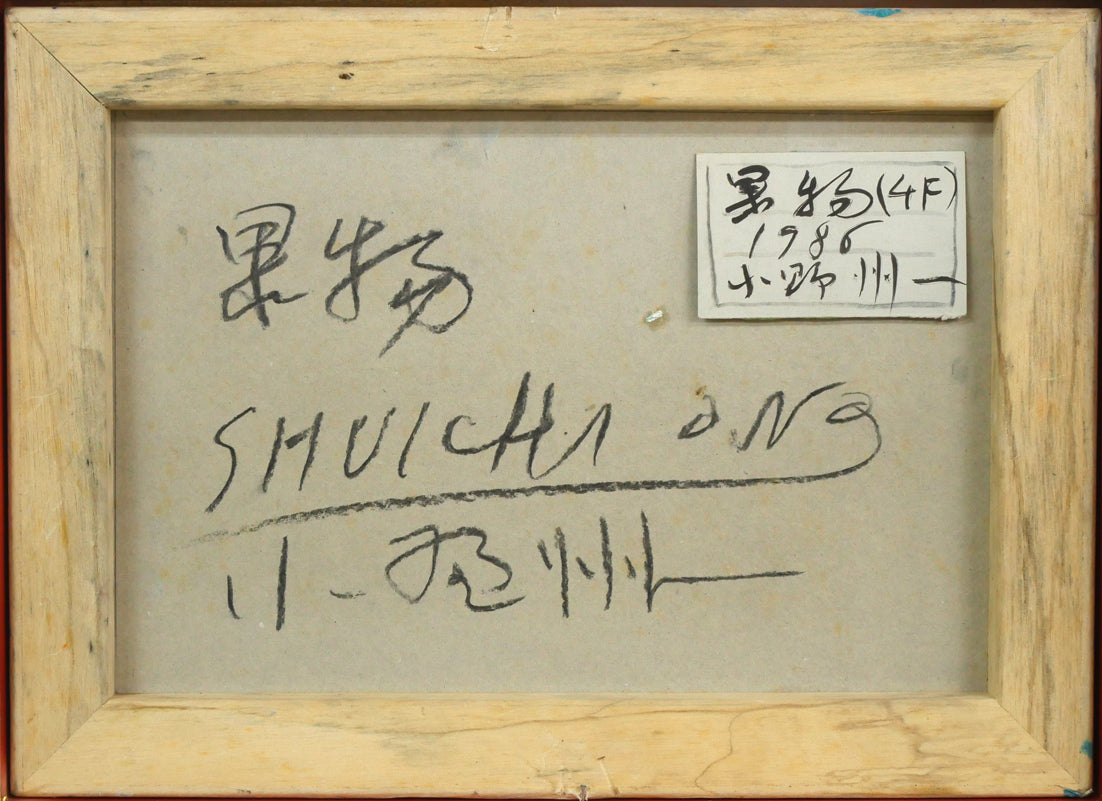 果物
SHUICHI ONO
小野州一
果物(4F)
1986
小野州一